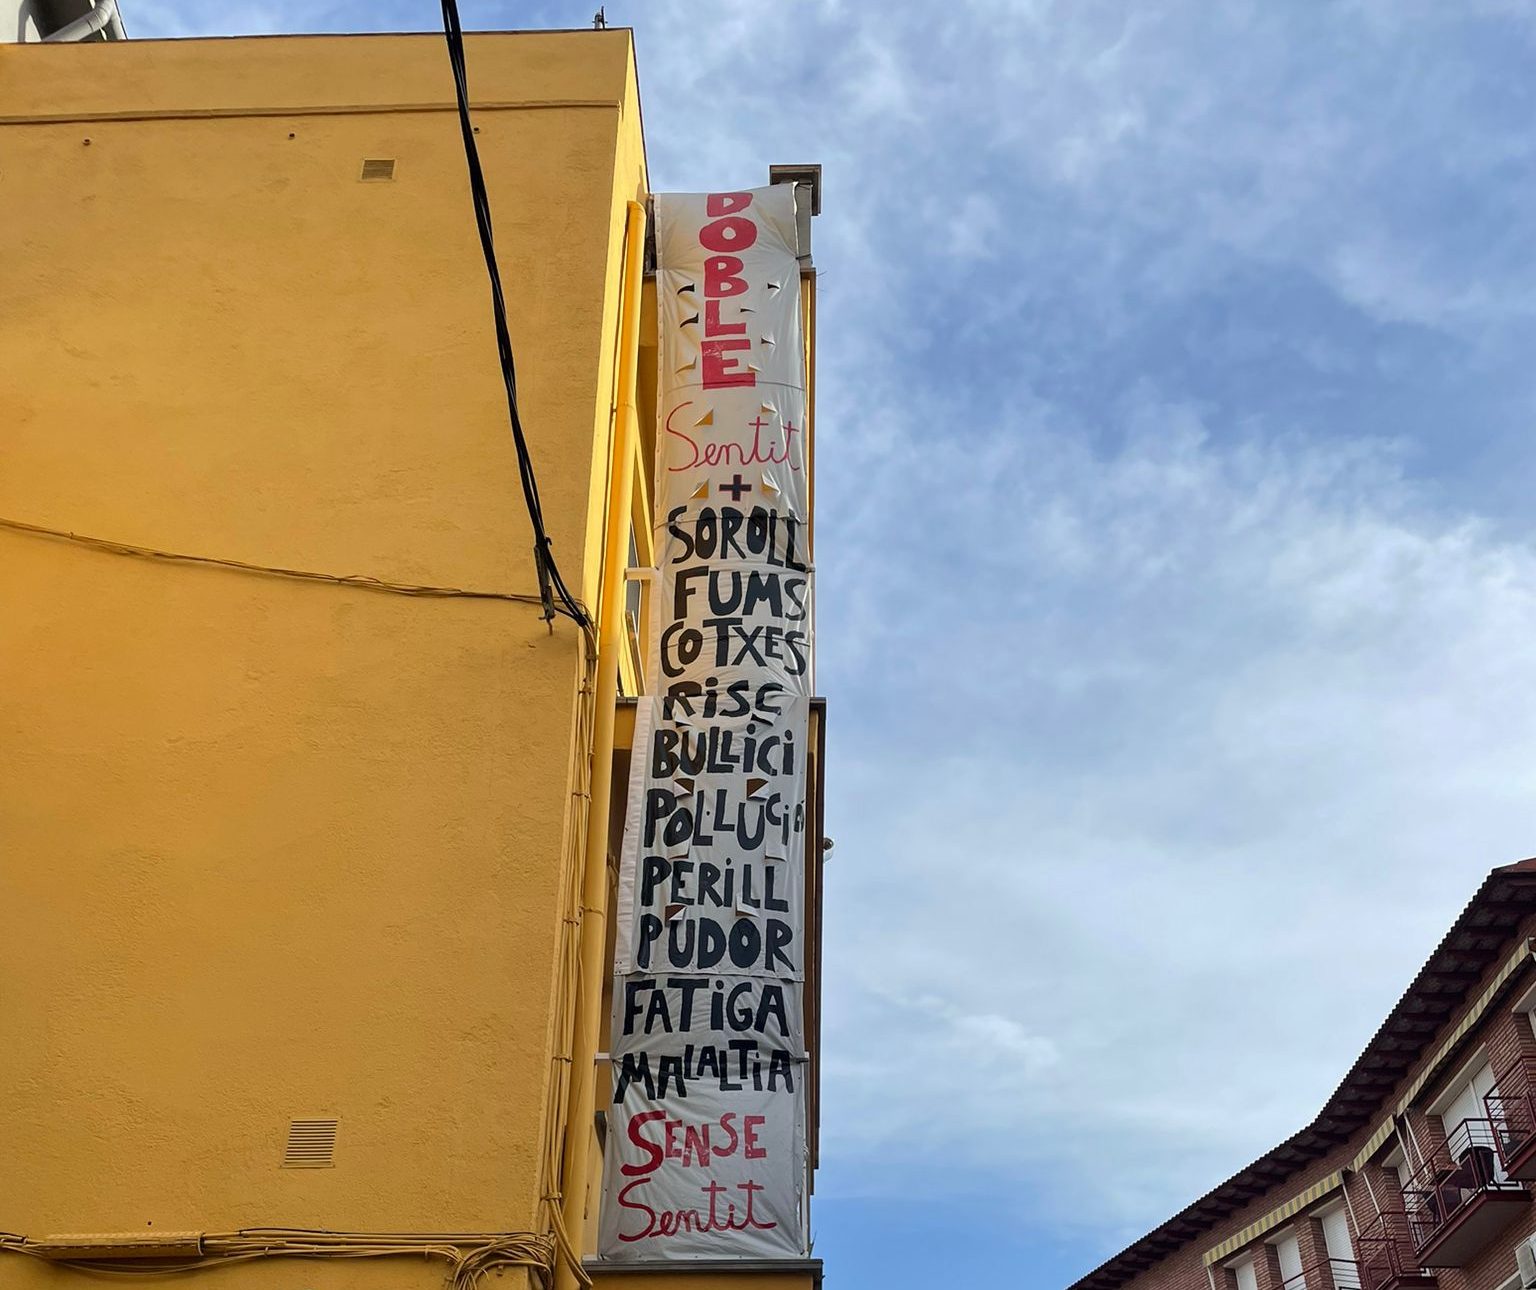 DOBLE
Sentit
+
SOROLL
FUMS
COTXES
RISC
BULLICI
POL·LUCIÓ
PERILL
PUDOR
FATIGA
MALALTIA
SENSE
Sentit